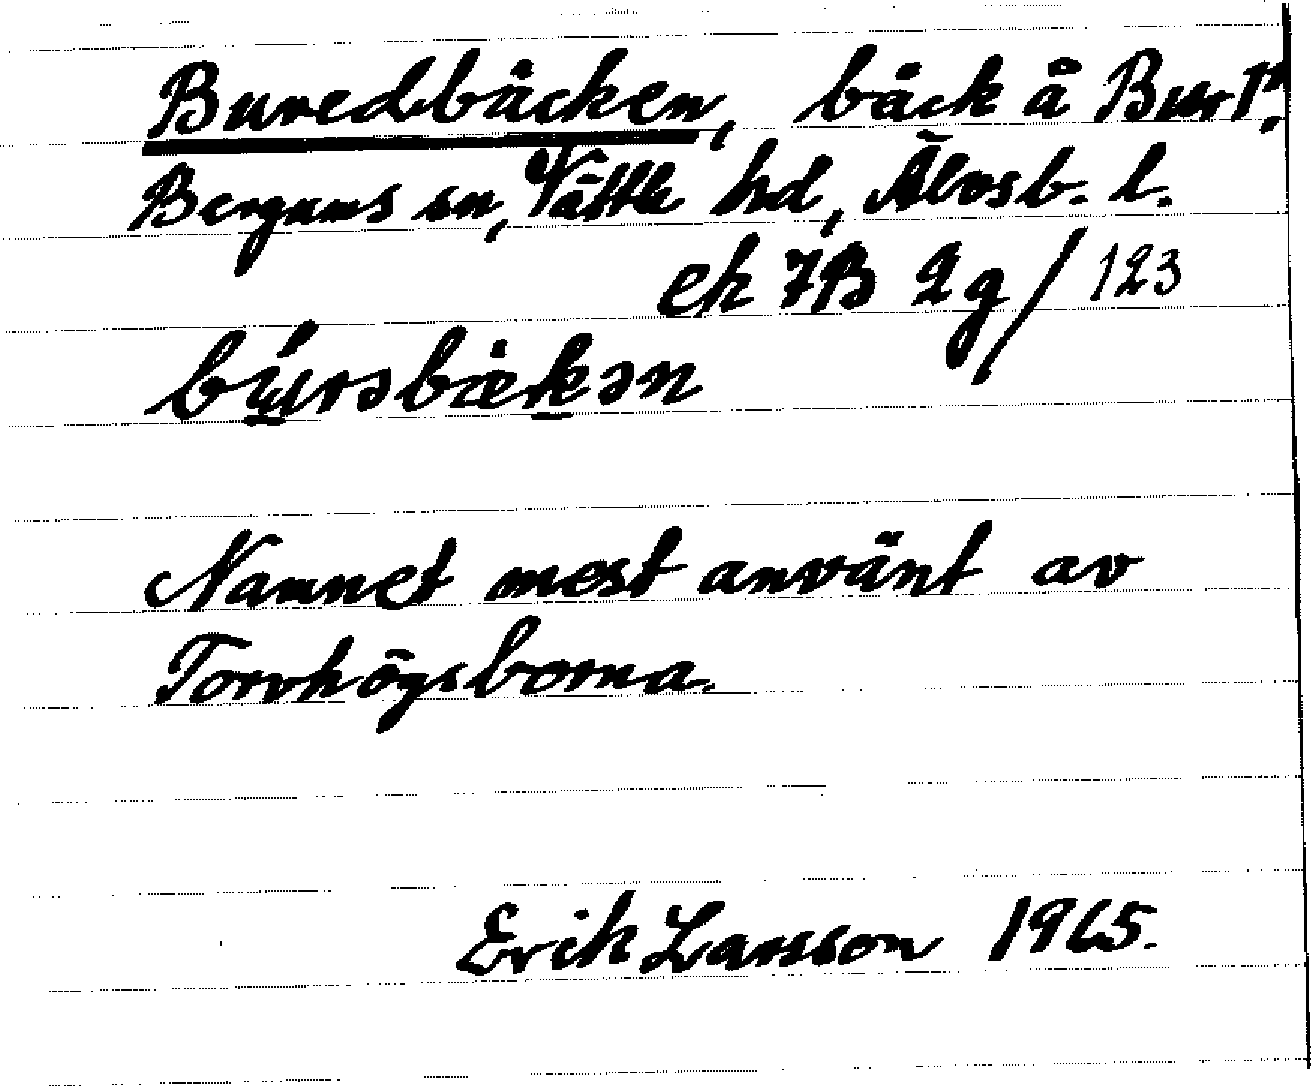 Buredbäcken, bäck å Bur 1²,
Bergums sn, Vättle hd, Älvsb. l.
ek 7B 2g/123
bu̲rəbæk̲ən
Namnet mest använt av
Torvhögsborna.
Erik Larsson 1965.